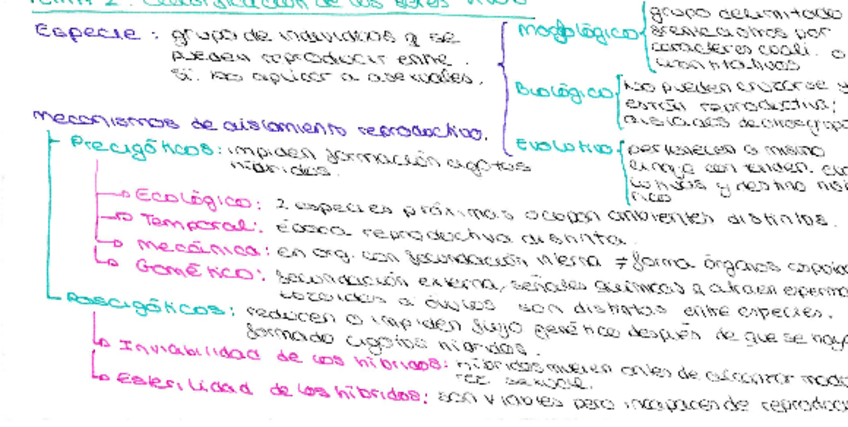 Tema 2: Clasificación de los seres vivos
Especie: grupo de individuos q se
pueden reproducir entre
sí. No aplicar a asexuales.
Morfológico grupo delimitado
caracteres cuali. o
cuantitativos
Biológico No pueden cruzarse y
están reproductiva;
aislados de otros grupo
Evolutivo pertenecen a mismo
linaje con tenden.
y destino
rico
Mecanismos de aislamiento reproductivo.
Precigóticos: impiden formación cigotos
híbridos.
Ecológico: 2 especies próximas ocupan ambientes distintos.
Temporal: época reproductiva distinta.
Mecánica: en org. con fecundación interna ≠ forma órganos copula
Gamético: fecundación externa, señales químicas q atraen esperma
tozoides a óvulos son distintas entre especies.
Poscigóticos: reducen o impiden flujo genético después de que se haya
formado cigotos híbridos.
Inviabilidad de los híbridos: híbridos mueren antes de alcanzar madu
rez sexual.
Esterilidad de los híbridos: son viables pero incapaces de reproduc